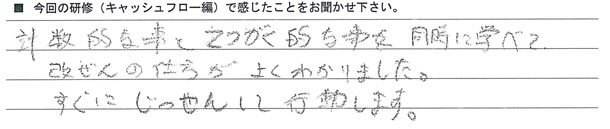 ■ 今回の研修（キャッシュフロー編）で感じたことをお聞かせ下さい。
計数的な事と てつがく的な事を 同時に学べて
改ぜんの仕方が よくわかりました。
すぐに じっせんして 行動します。